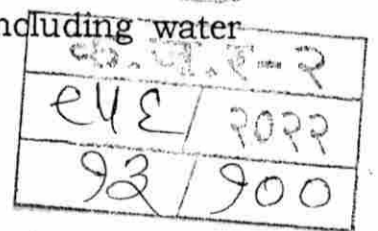 ncluding water
९५६/२०२२
१३/१००